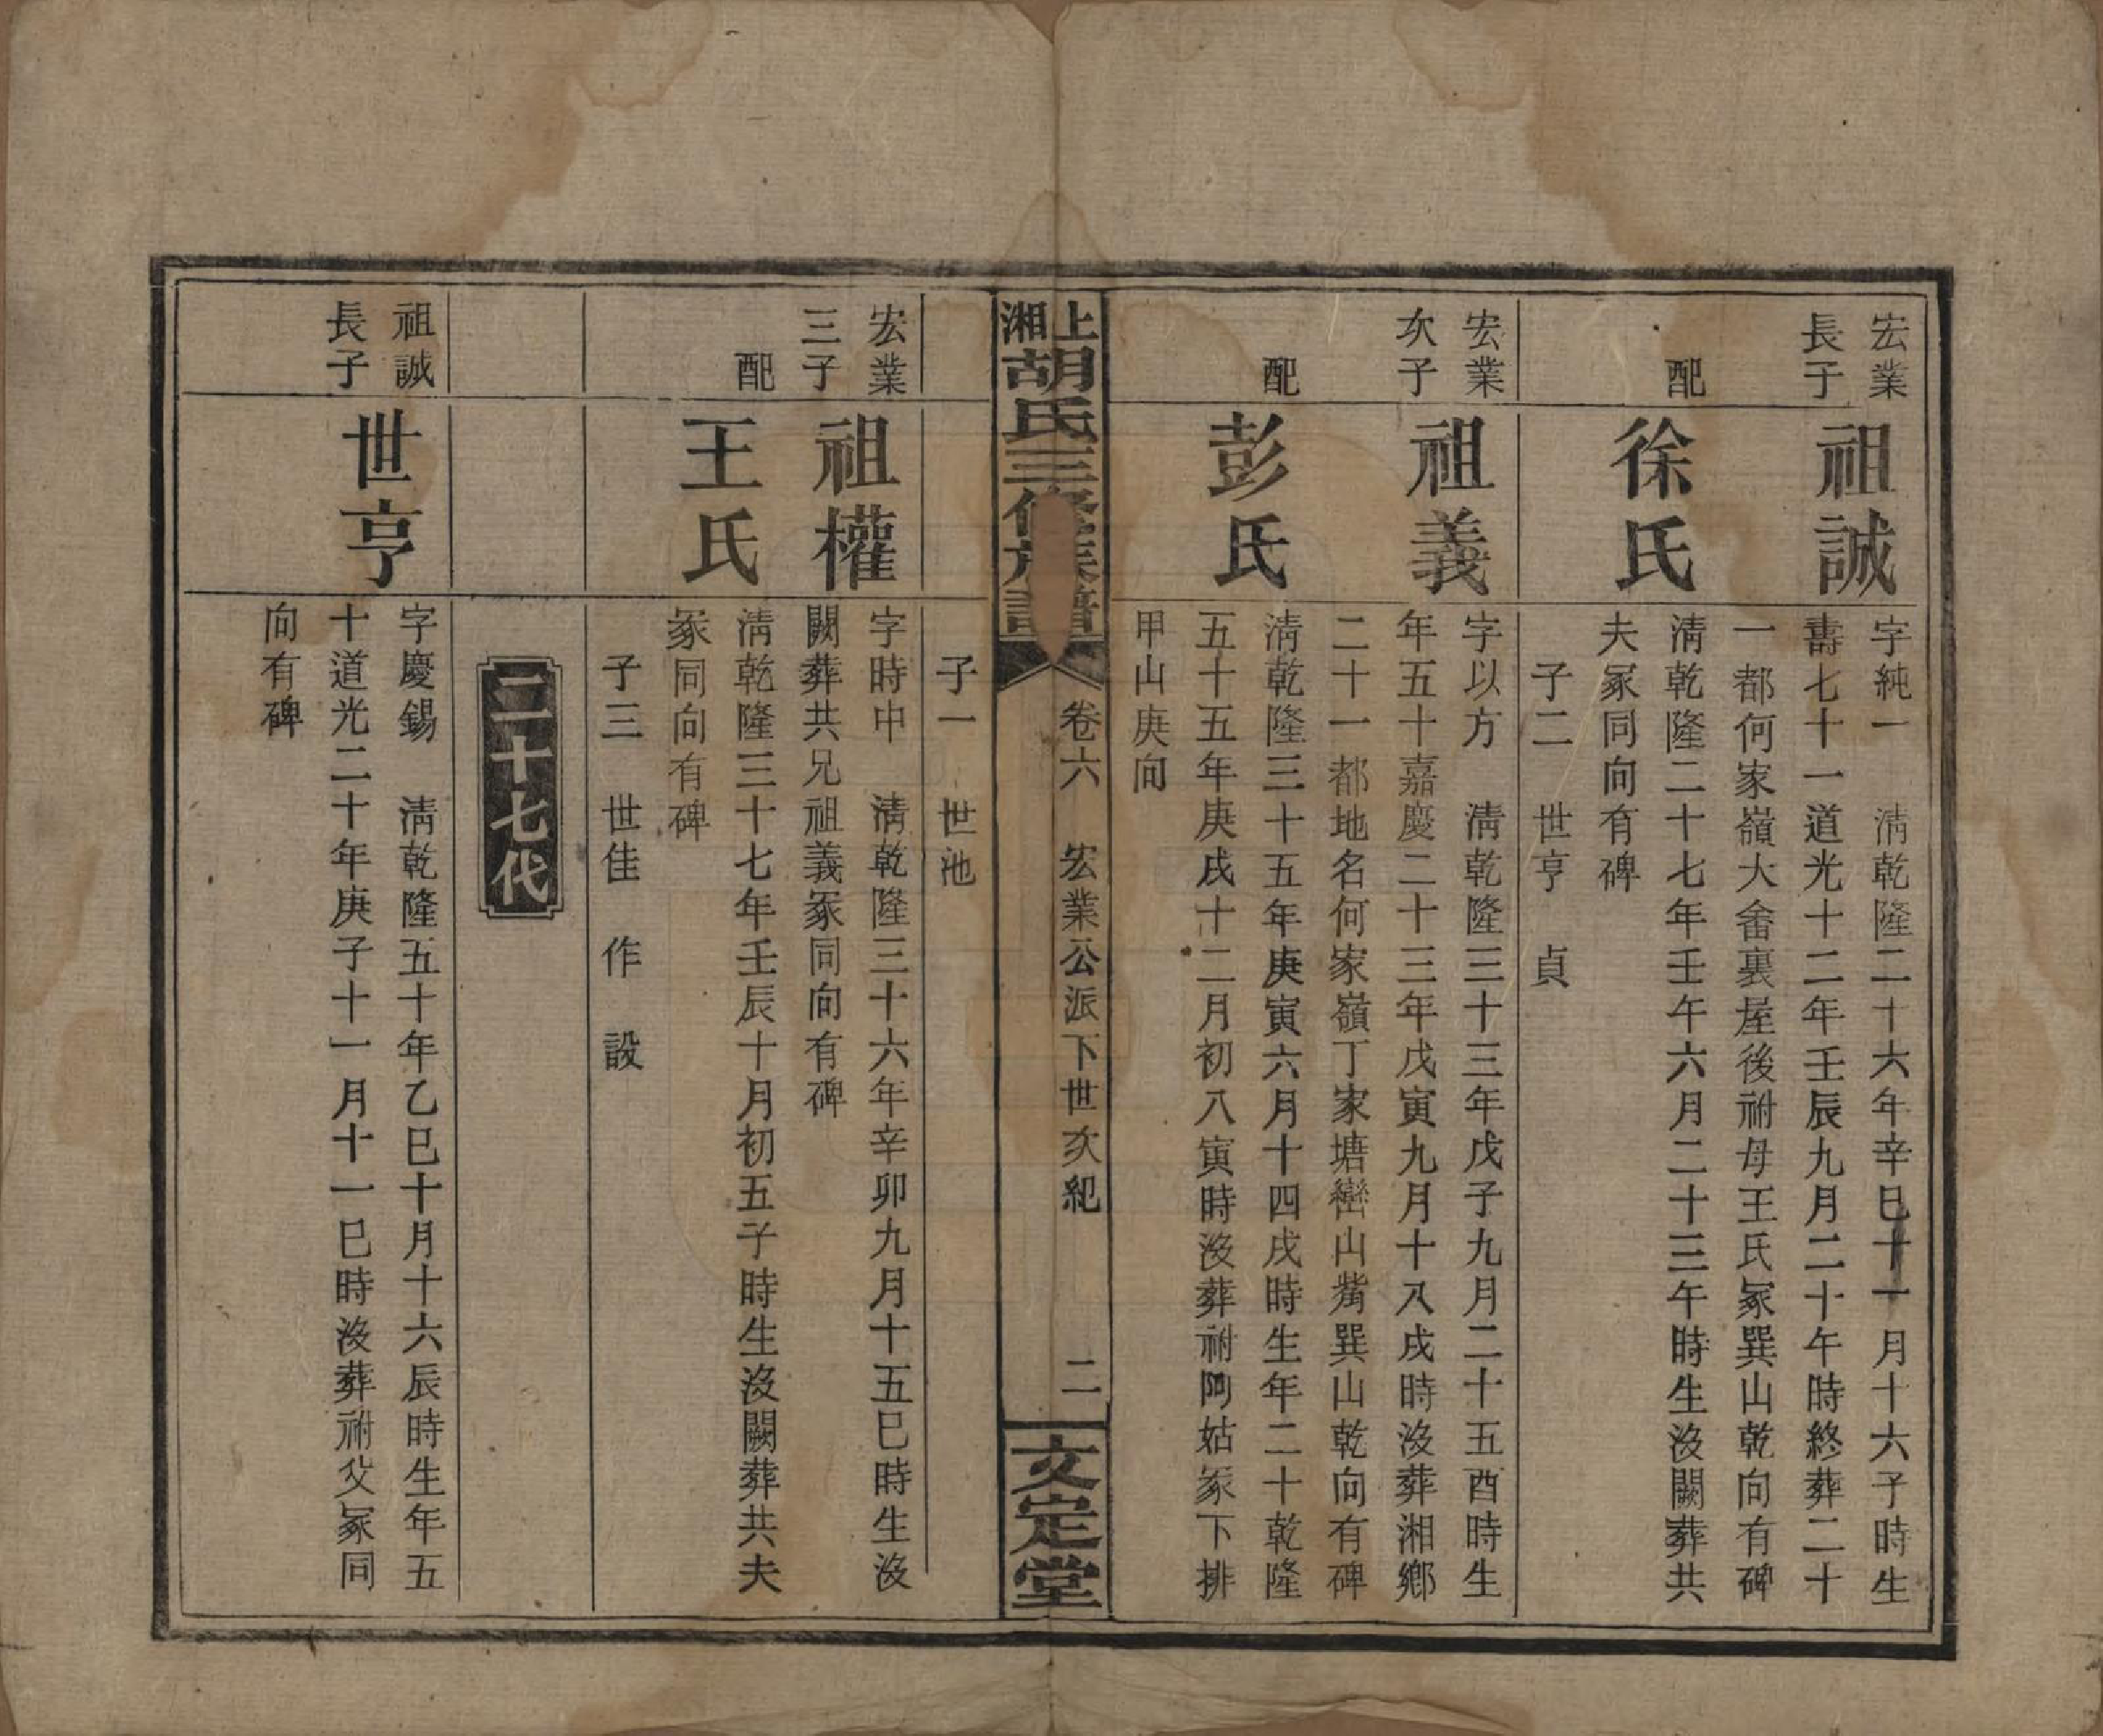 宏業
長子
祖誠
字純一 清乾隆二十六年辛巳十一月十六子時生
壽七十一道光十二年壬辰九月二十午時終葬二十
一都何家嶺大畬裏屋後祔母王氏冢巽山乾向有碑
配
徐氏
清乾隆二十七年壬午六月二十三午時生沒闕葬共
夫冢同向有碑
子二 世亨 貞
宏業
次子
祖義
字以方 清乾隆三十三年戊子九月二十五酉時生
年五十嘉慶二十三年戊寅九月十八戌時沒葬湘鄉
二十一都地名何家嶺丁家塘山觜巽山乾向有碑
配
彭氏
清乾隆三十五年庚寅六月十四戌時生年二十乾隆
五十五年庚戌十二月初八寅時沒葬祔阿姑冢下排
甲山庚向
上湘胡氏三修族譜
卷六 宏業公派下世次紀 二
文定堂
子一 世池
宏業
三子
祖權
字時中 清乾隆三十六年辛卯九月十五巳時生沒
闕葬共兄祖義冢同向有碑
配
王氏
清乾隆三十七年壬辰十月初五子時生沒闕葬共夫
冢同向有碑
子三 世佳 作 設
二十七代
祖誠
長子
世亨
字慶錫 清乾隆五十年乙巳十月十六辰時生年五
十道光二十年庚子十一月十一巳時沒葬祔父冢同
向有碑